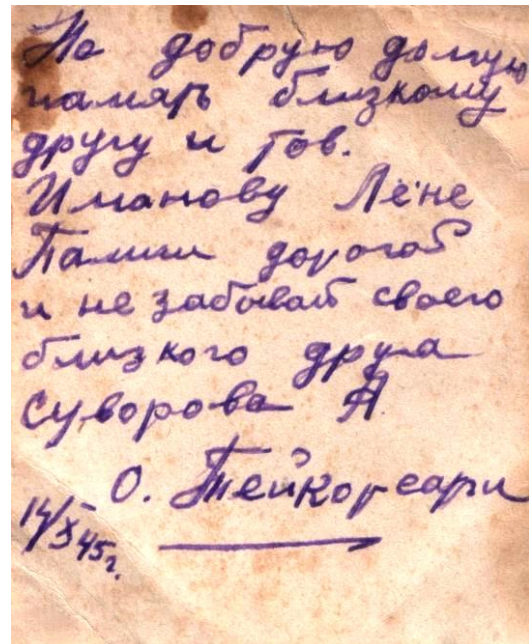 На добрую долгую
память близкому
другу и тов.
Иманову Лёне
Помни дорогой
и не забывай своего
близкого друга
Суворова А.
О. Тейкорсари
14/X 45г.